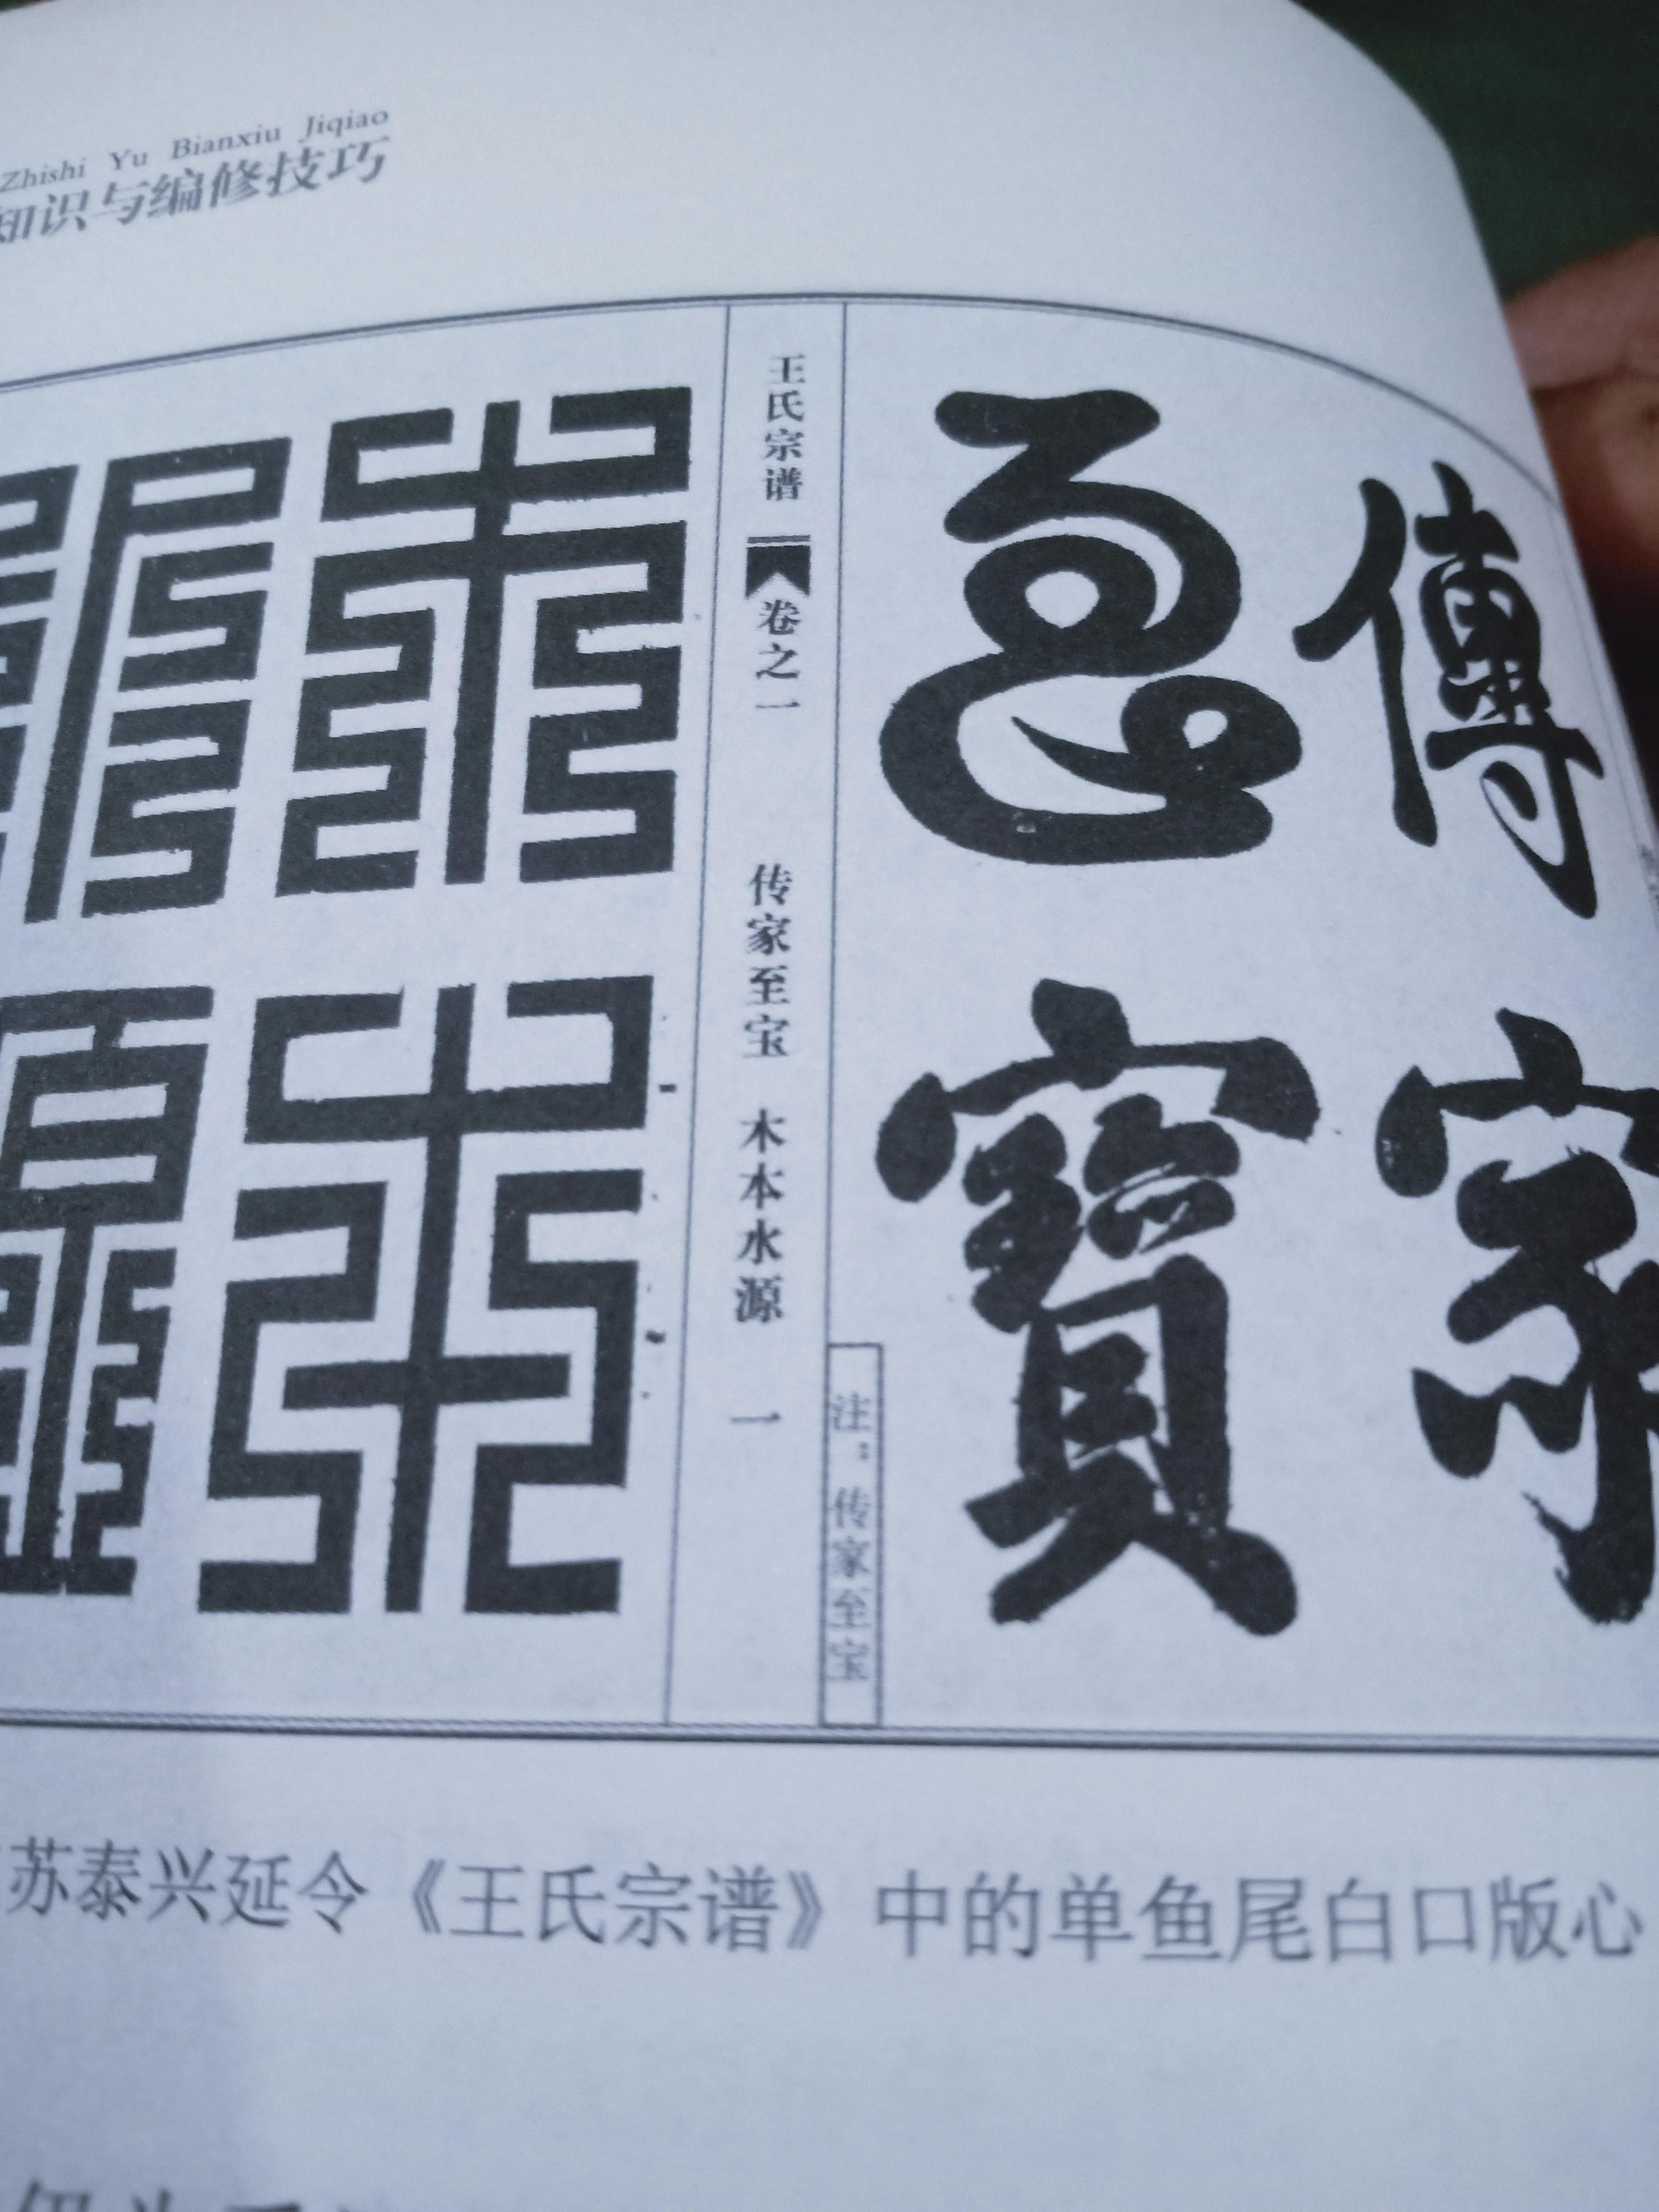 Zhishi Yu Bianxiu Jiqiao
知识与编修技巧
傳家
至寶
注：传家至宝
王氏宗谱
卷之一
传家至宝 木本水源 一
木本
水源
苏泰兴延令《王氏宗谱》中的单鱼尾白口版心